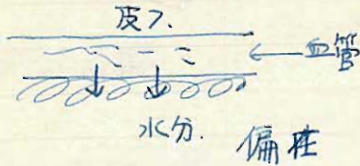 皮フ.
血管
水分.
偏性